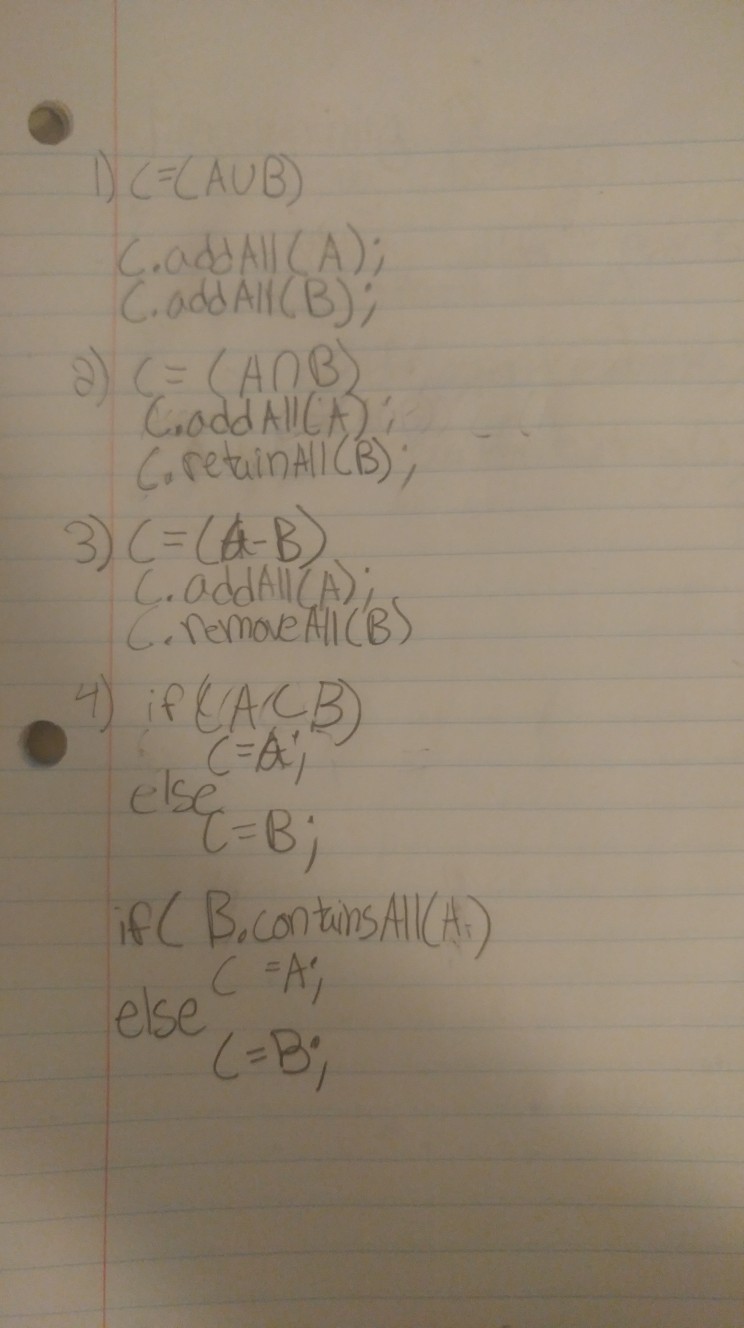 1) C=(A∪B)
C.addAll(A);
C.addAll(B);
2) C=(A∩B)
C.addAll(A);
C.retainAll(B);
3) C=(A-B)
C.addAll(A);
C.removeAll(B)
4) if (A⊂B)
C=A;
else
C=B;
if( B.containsAll(A)
C =A;
else
C=B;